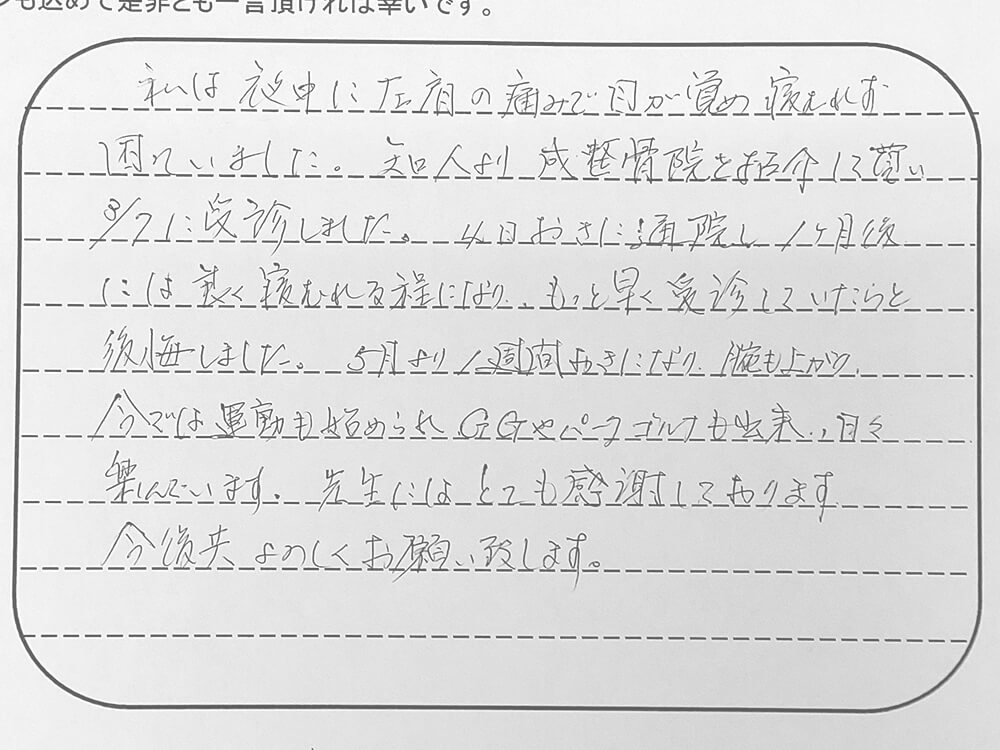 も込めて是非とも一言頂ければ幸いです。
私は夜中に左肩の痛みで目が覚め寝むれず
困っていました。知人より成整骨院を紹介して貰い
3/7に受診しました。4日おきに通院し1ヶ月後
には長く寝むれる程になり、もっと早く受診していたらと
後悔しました。5月より1週間おきになり、腕も上がり、
今では運動も始められGGやパークゴルフも出来、日々
楽しんでいます。先生にはとても感謝しております
今後共よろしくお願い致します。